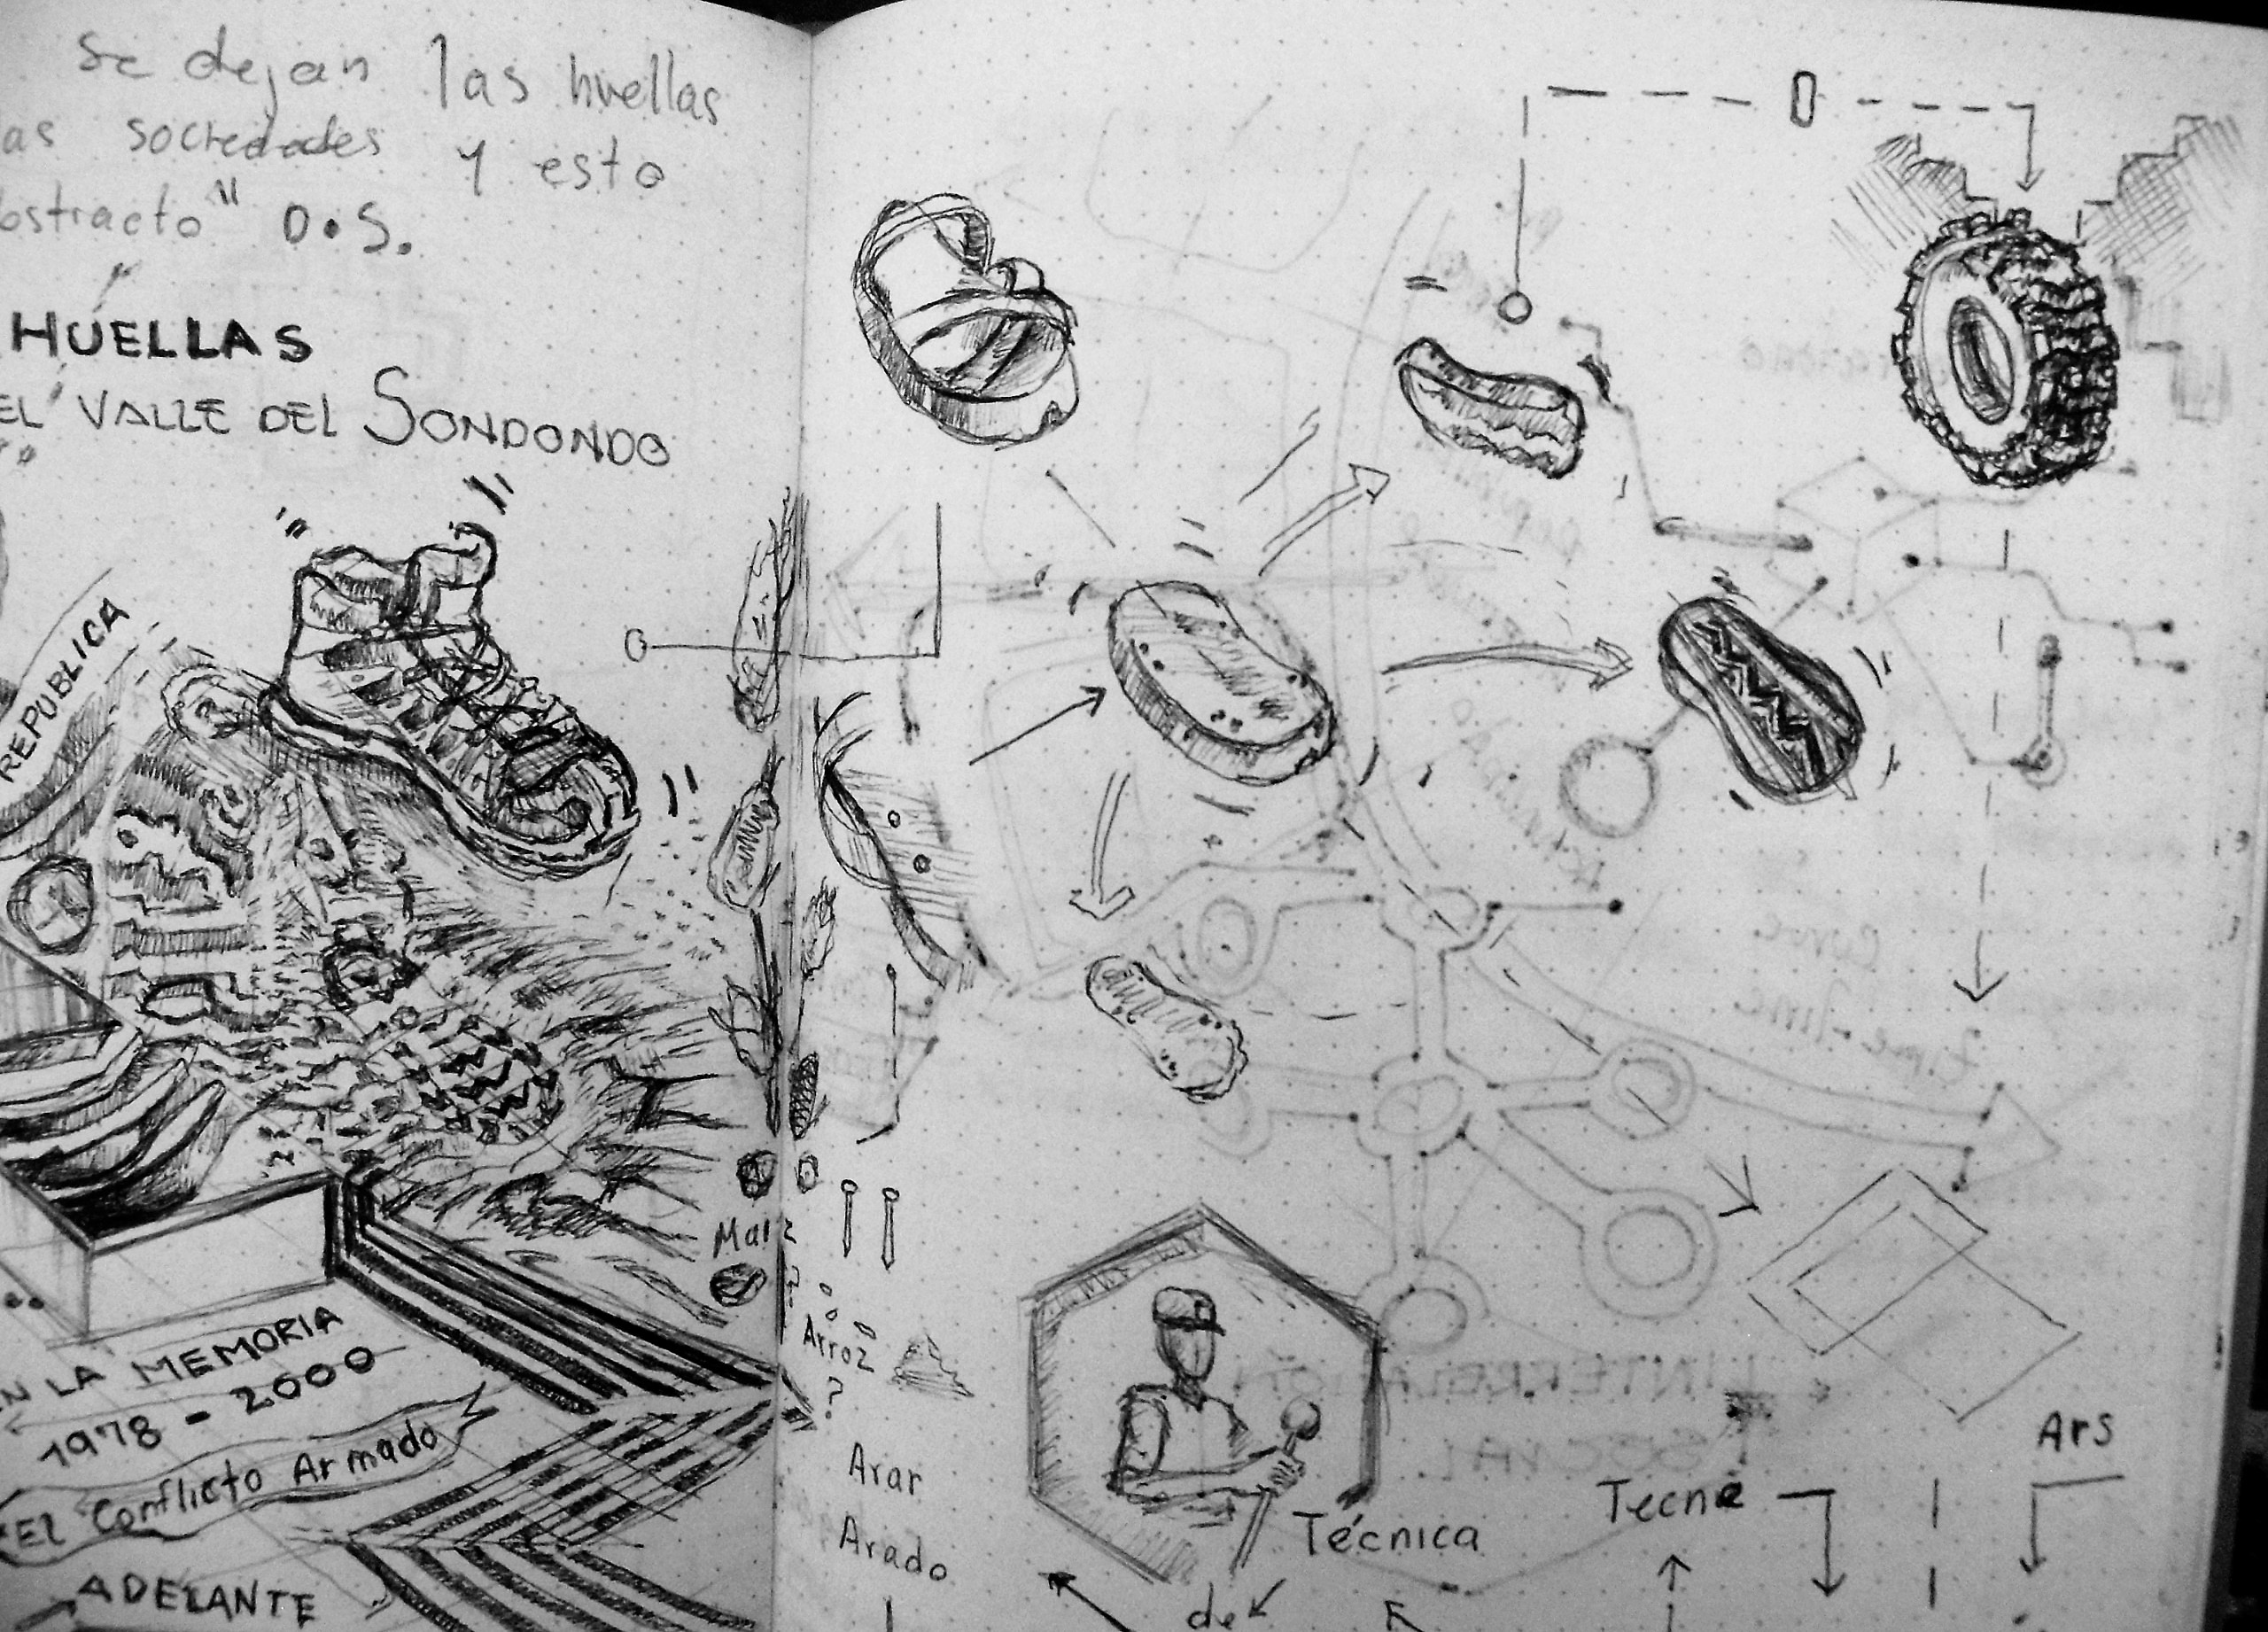 se dejan las huellas
as sociedades y esto
bstracto" D.S.
HUELLAS
EL VALLE DEL SONDONDO
REPUBLICA
EN LA MEMORIA
1978 - 2000
El Conflicto Armado
ADELANTE
Maiz
?
Arroz
?
Arar
Arado
Técnica
de
Tecne
Ars